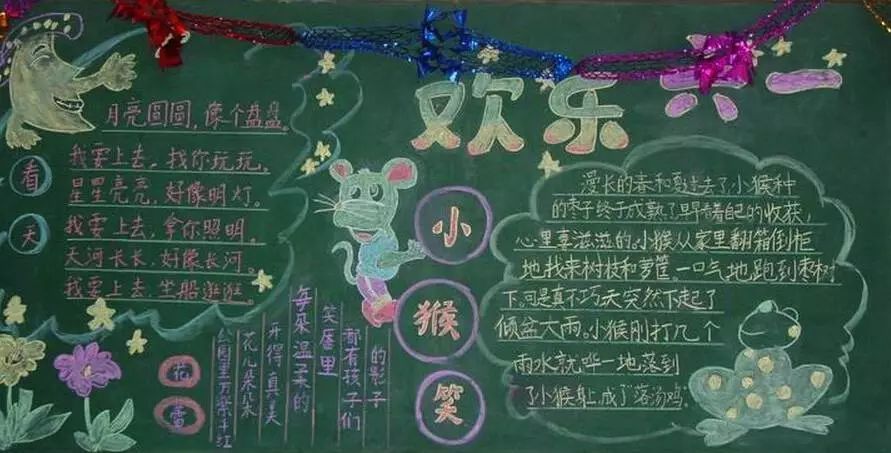 欢乐六一
看天
月亮圆圆,像个盘盘。
我要上去,找你玩玩。
星星亮亮,好像明灯。
我要上去,拿你照明。
天河长长,好像长河。
我要上去,坐船逛逛。
花蕾
公园里万紫千红
花儿朵朵
开得真美
每朵温柔的
笑靥里
都有孩子们
的影子
小猴笑
漫长的春和夏过去了,小猴种
的枣子终于成熟了看着自己的收获,
心里喜滋滋的。小猴从家里翻箱倒柜
地找来树枝和萝筐。一口气地跑到枣树
下。可是真不巧天突然下起了
倾盆大雨。小猴刚打几个
雨水就哗一地落到
了小猴身上,成了落汤鸡。